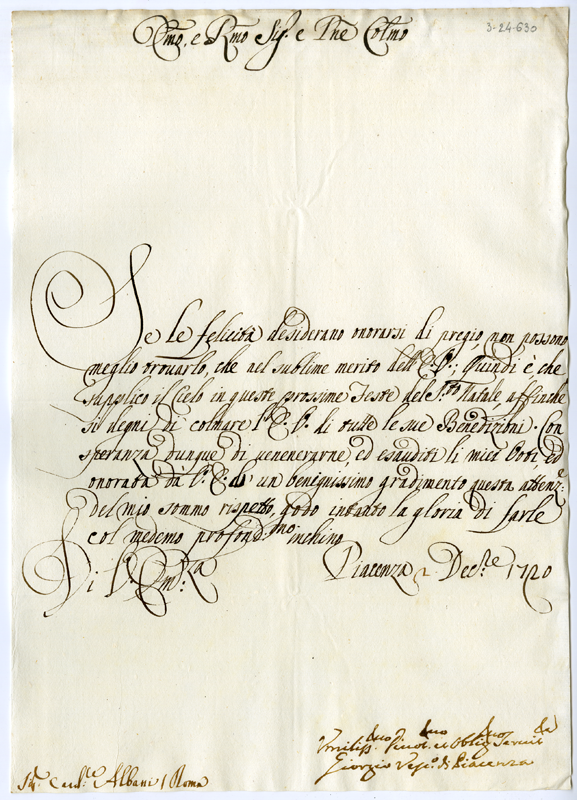 3-24-630
Emo, e Rmo Sig.r e Pne Colmo
Se le felicità desiderano onorarsi di pregio non possono
meglio trouarlo, che nel sublime merito dell' E. V.; Quindi è che
supplico il Cielo in queste prossime Feste del S.to Natale affinche
si degni di colmare l' E. V. di tutte le sue Benedizioni. Con
speranza dunque di uenerarne, ed esauditi li miei Voti ed
onorata da V. E. di un benignissimo gradimento questa attenz.e
del mio sommo rispetto, godo intanto la gloria di farle
col medemo profond.mo inchino
Di V. Em.za Piacenza 2 Decb.e 1720
Vmiliss.mo Diuot.mo et Oblig.mo Seruit.e
Giorgio Vesc.o di Piacenza
Sig. Card.le Albani / Roma